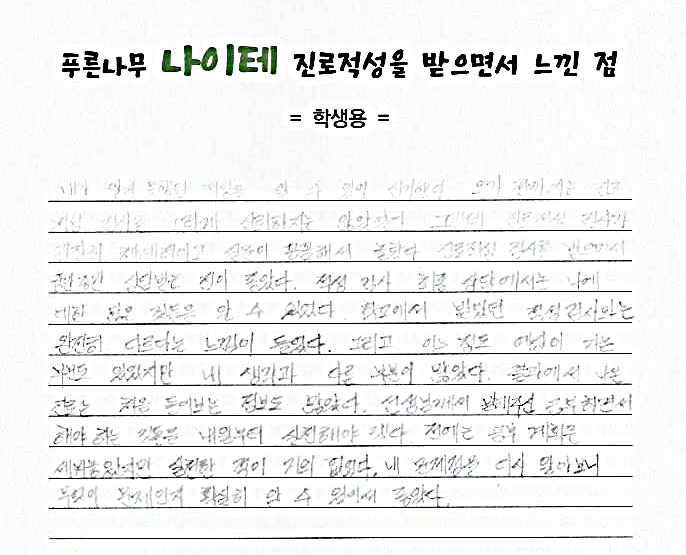 푸른나무 나이테 진로적성을 받으면서 느낀 점
= 학생용 =
내가 알 수 있어 신기했다.
적성 검사를 그렇게 신뢰하지는 않았는데 진로적성 검사가
굉장히 체계적이고 놀랐다. 진로적성 검사를 받으면서
상담받는 것이 좋았다. 적성 검사 상담에서는 나에
대한 많은 것들을 알 수 있었다. 학교에서 받았던 적성검사와는
완전히 다르다는 느낌이 들었다. 그리고 어느 정도 예상이 가는
부분도 있었지만 내 생각과 다른 부분이 많았다. 결과에서 나온
진로는 처음 들어보는 정보도 많았다. 선생님께서 말해주신 공부하면서
해야 하는 것들을 내일부터 실천해야 겠다. 전에는 공부 계획은
세워놓았지만 실천한 적이 거의 없었다. 내 문제점을 다시 알아보니
무엇이 문제인지 확실히 알 수 있어서 좋았다.